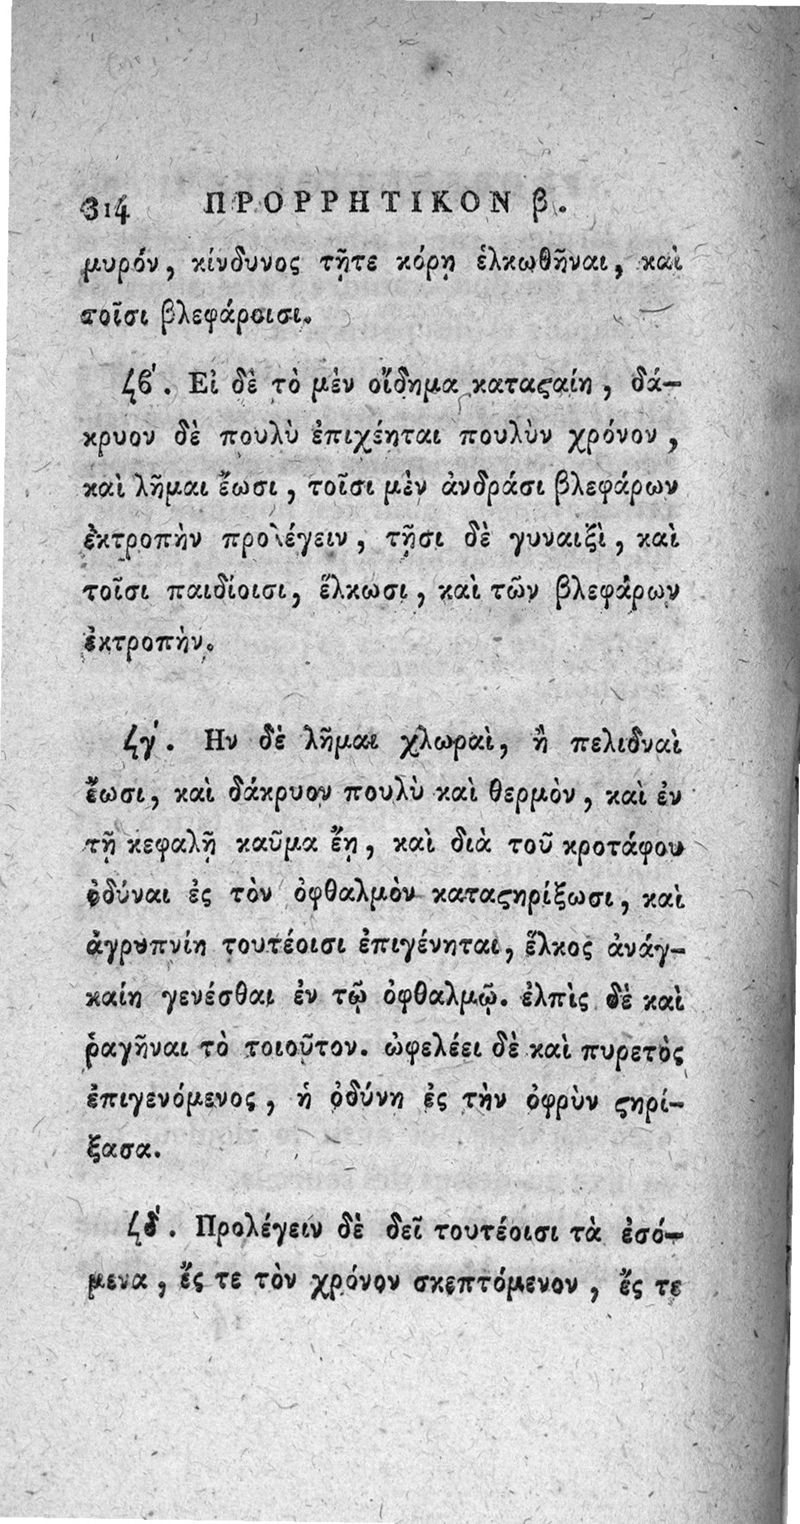 314 ΠΡΟΡΡΗΤΙΚΟΝ β.
μυρόν, κίνδυνος τῇτε κόρῃ ἑλκωθῆναι, καὶ
τοῖσι βλεφάροισι.
ϟϐ΄. Εἰ δὲ τὸ μὲν οἴδημα καταϛαίη, δά–
κρυον δὲ πουλὺ ἐπιχέηται πουλὺν χρόνον,
καὶ λῆμαι ἔωσι, τοῖσι μὲν ἀνδράσι βλεφάρων
ἐκτροπὴν προλέγειν, τῇσι δὲ γυναιξὶ, καὶ
τοῖσι παιδίοισι, ἕλκωσι, καὶ τῶν βλεφάρων
ἐκτροπήν.
ϟγ΄. Ην δὲ λῆμαι χλωραὶ, ἢ πελιδναὶ
ἔωσι, καὶ δάκρυον πουλὺ καὶ θερμὸν, καὶ ἐν
τῇ κεφαλῇ καῦμα ἔῃ, καὶ διὰ τοῦ κροτάφου
ὀδύναι ἐς τὸν ὀφθαλμὸν καταϛηρίξωσι, καὶ
ἀγρυπνίη τουτέοισι ἐπιγένηται, ἕλκος ἀνάγ–
καίη γενέσθαι ἐν τῷ ὀφθαλμῷ. ἐλπὶς δὲ καὶ
ῥαγῆναι τὸ τοιοῦτον. ὠφελέει δὲ καὶ πυρετὸς
ἐπιγενόμενος, ἡ ὀδύνη ἐς τὴν ὀφρὺν ϛηρί–
ξασα.
ϟδ΄. Προλέγειν δὲ δεῖ τουτέοισι τὰ ἐσό–
μενα, ἔς τε τὸν χρόνον σκεπτόμενον, ἔς τε